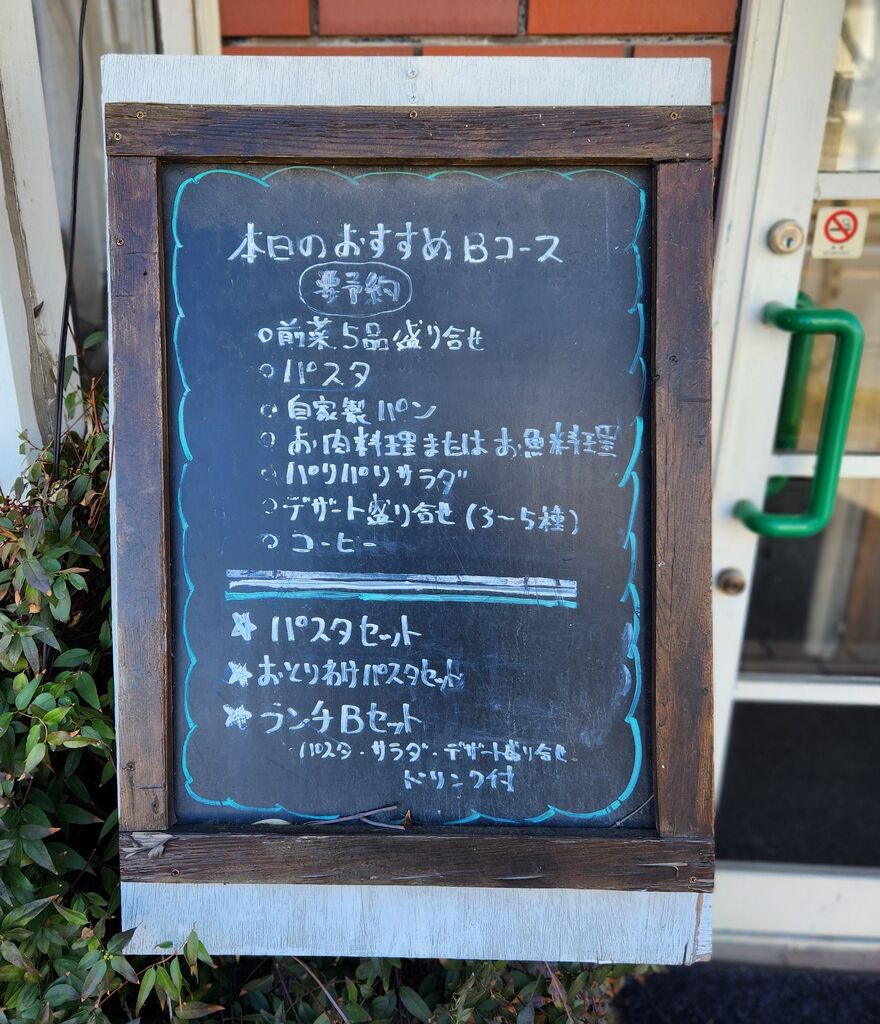 本日のおすすめBコース
要予約
○前菜5品盛り合せ
○パスタ
○自家製パン
○お肉料理またはお魚料理
○パリパリサラダ
○デザート盛り合せ(3〜5種)
○コーヒー
★パスタセット
★おとりわけパスタセット
★ランチBセット
パスタ・サラダ・デザート盛り合せ
ドリンク付